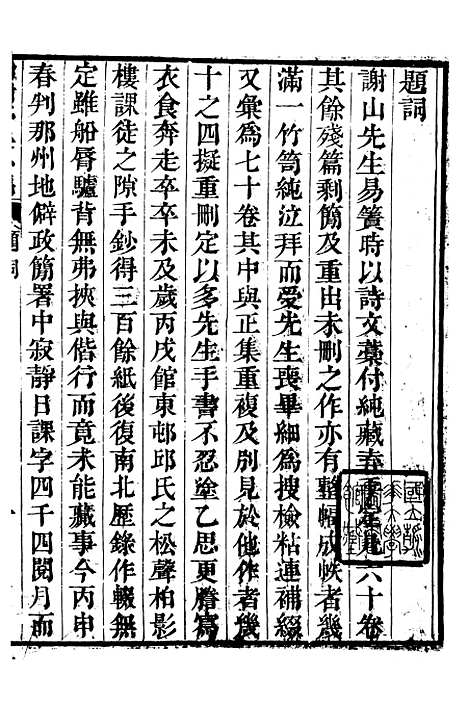 題詞
謝山先生易簀時以詩文藁付純藏弆 六十卷
其餘殘篇剩簡及重出未刪之作亦有整幅成帙者幾
滿一竹笥純泣拜而受先生喪畢細爲搜檢粘連補綴
又彙爲七十卷其中與正集重複及別見於他作者幾
十之四擬重刪定以多先生手書不忍塗乙思更謄寫
衣食奔走卒卒未及歲丙戌館東邨邱氏之松聲柏影
樓課徒之隙手鈔得三百餘紙後復南北歷錄作輟無
定雖船脣驢背無弗挾與偕行而竟未能蕆事今丙申
春判那州地僻政簡署中寂靜日課字四千四閱月而
題詞